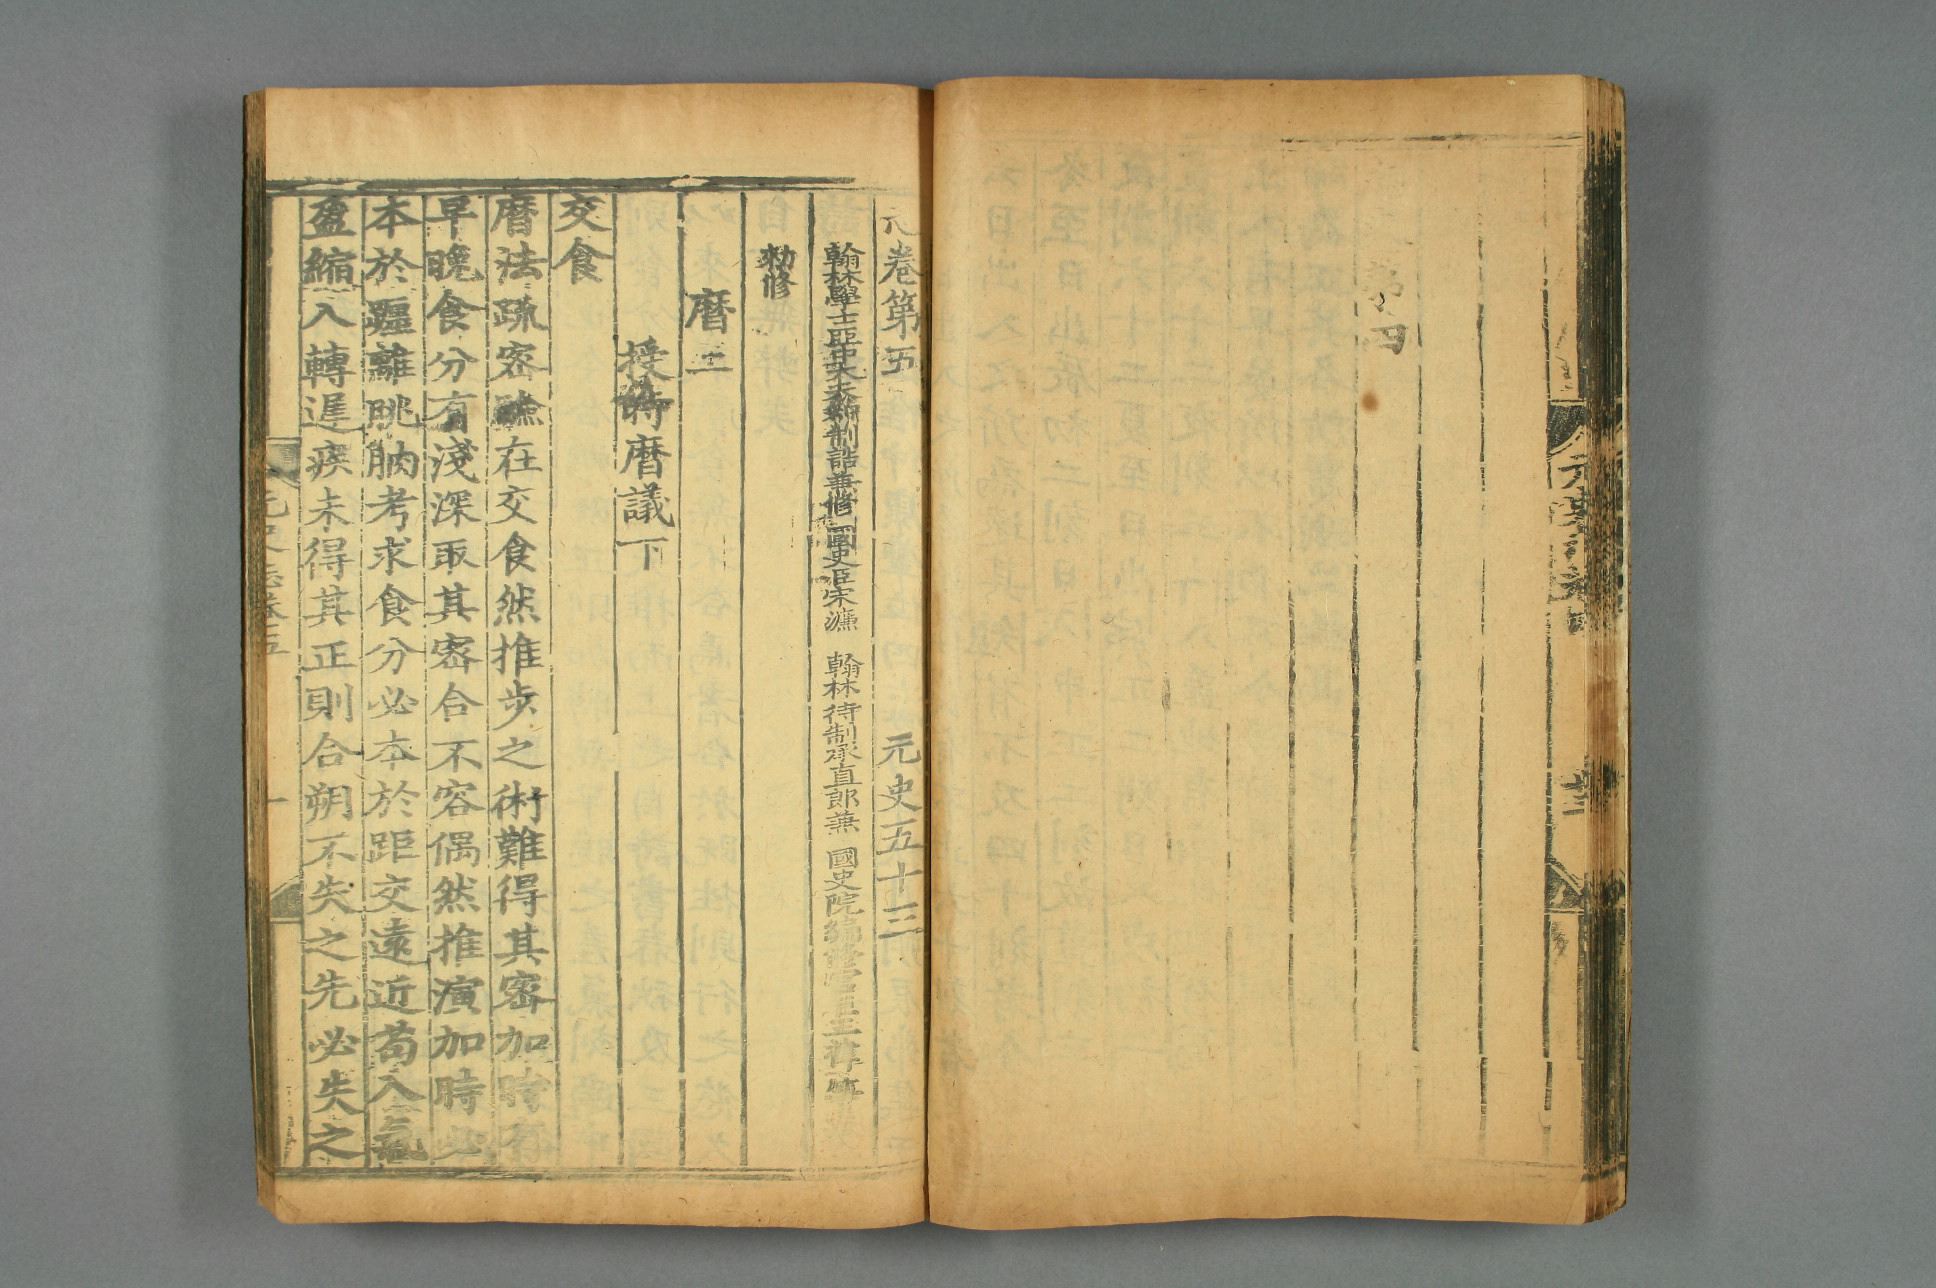 第四
卷第五 元史五十三
翰林學士亞中大夫知制誥兼修國史臣宋濂 翰林待制承直郎兼國史院編修官臣王禕等
勑修
曆二
授時曆議下
交食
曆法疏密驗在交食然推步之術難得其密加時有
早晚食分有淺深取其密合不容偶然推演加時必
本於躔離朓朒考求食分必本於距交遠近苟入氣
盈縮入轉遲疾未得其正則合朔不失之先必失之
元史志卷五
一